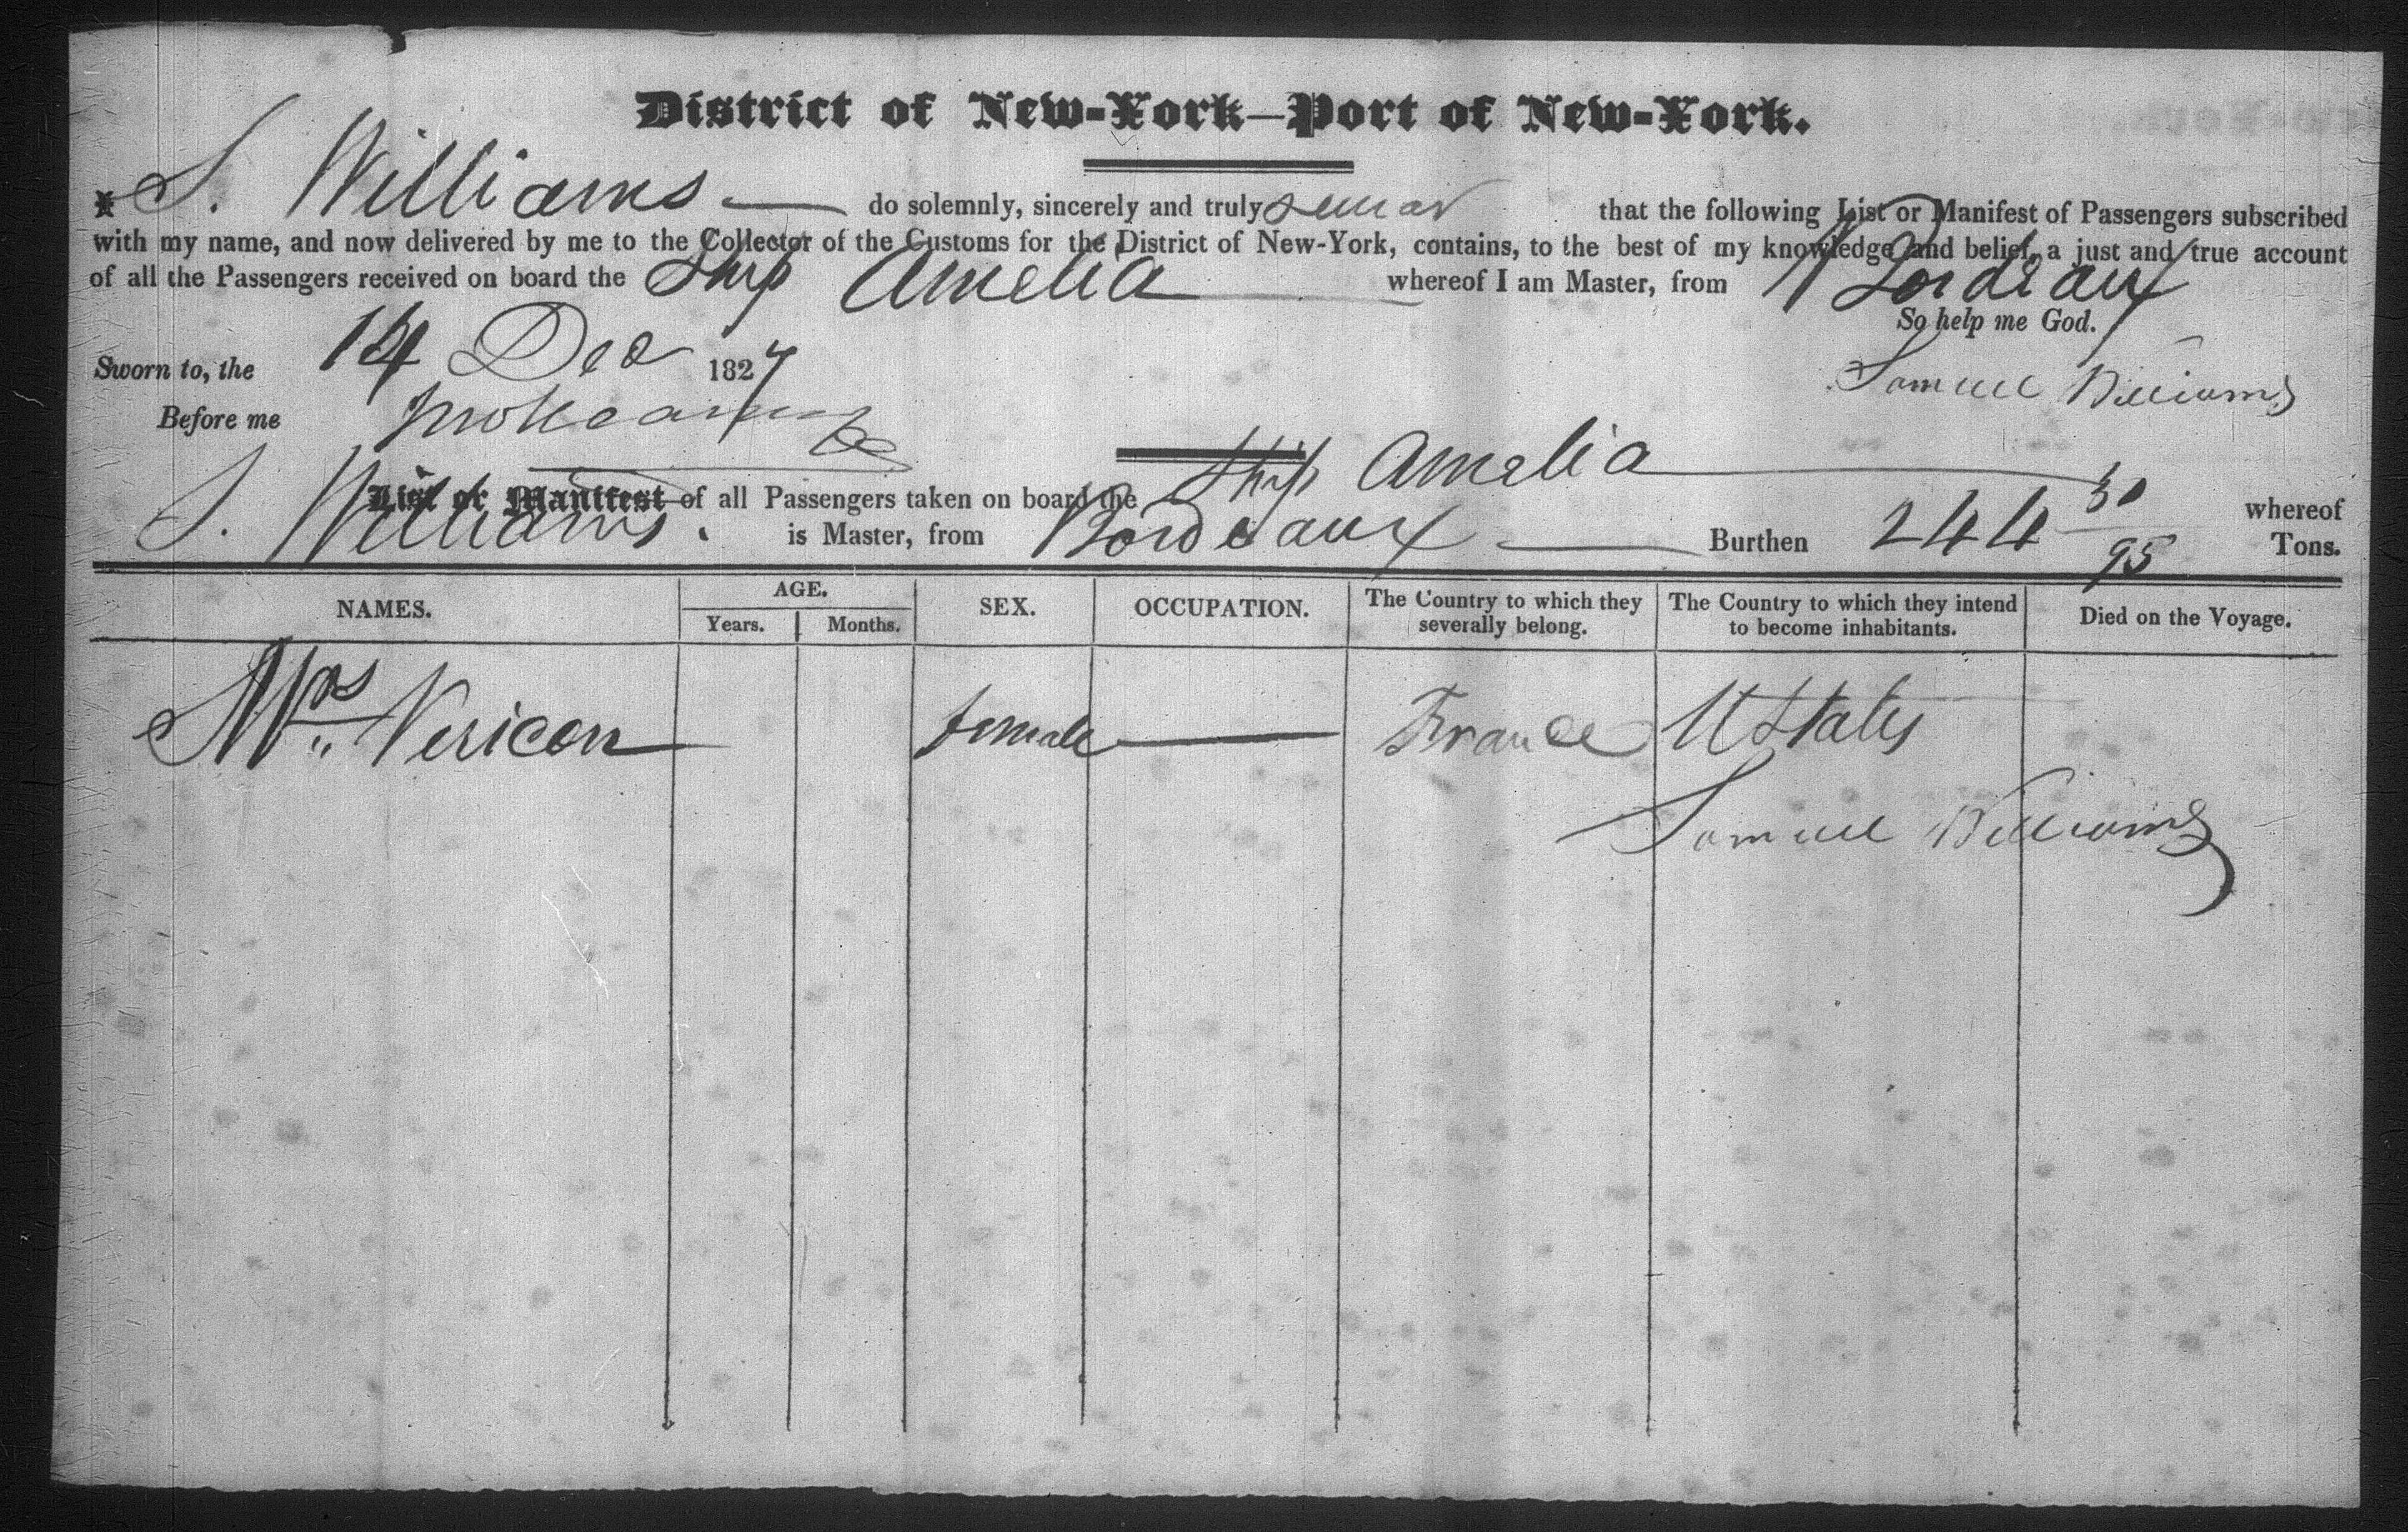 District of New-York—Port of New-York.
I S. Williams — do solemnly, sincerely and truly swear that the following List or Manifest of Passengers subscribed
with my name, and now delivered by me to the Collector of the Customs for the District of New-York, contains, to the best of my knowledge and belief, a just and true account
of all the Passengers received on board the Ship Amelia whereof I am Master, from Bordeaux
So help me God.
Sworn to, the 14 Dec 1827
Samuel Williams
Before me
List or Manifest of all Passengers taken on board the Ship Amelia whereof
S. Williams. is Master, from Bordeaux — Burthen 244 30/95 Tons.
NAMES. AGE. SEX. OCCUPATION. The Country to which they severally belong. The Country to which they intend to become inhabitants. Died on the Voyage.
Years. Months.
Mrs Vericon female — France U States
Samuel Williams